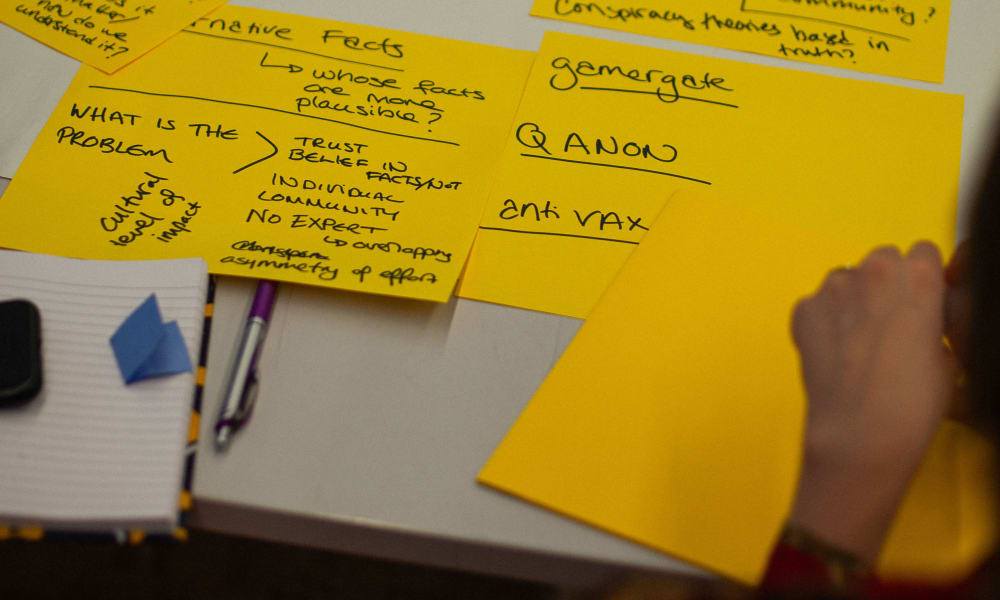 is it
how do we
understand it?
native Facts
↳ whose facts
are more
plausible?
WHAT IS THE
PROBLEM
Cultural
level of
impact
TRUST
BELIEF IN
FACTS/NOT
INDIVIDUAL
COMMUNITY
NO EXPERT
↳ overlapping
asymmetry of effort
gamergate
Q ANON
anti VAX
community?
Conspiracy theories based in
truth?